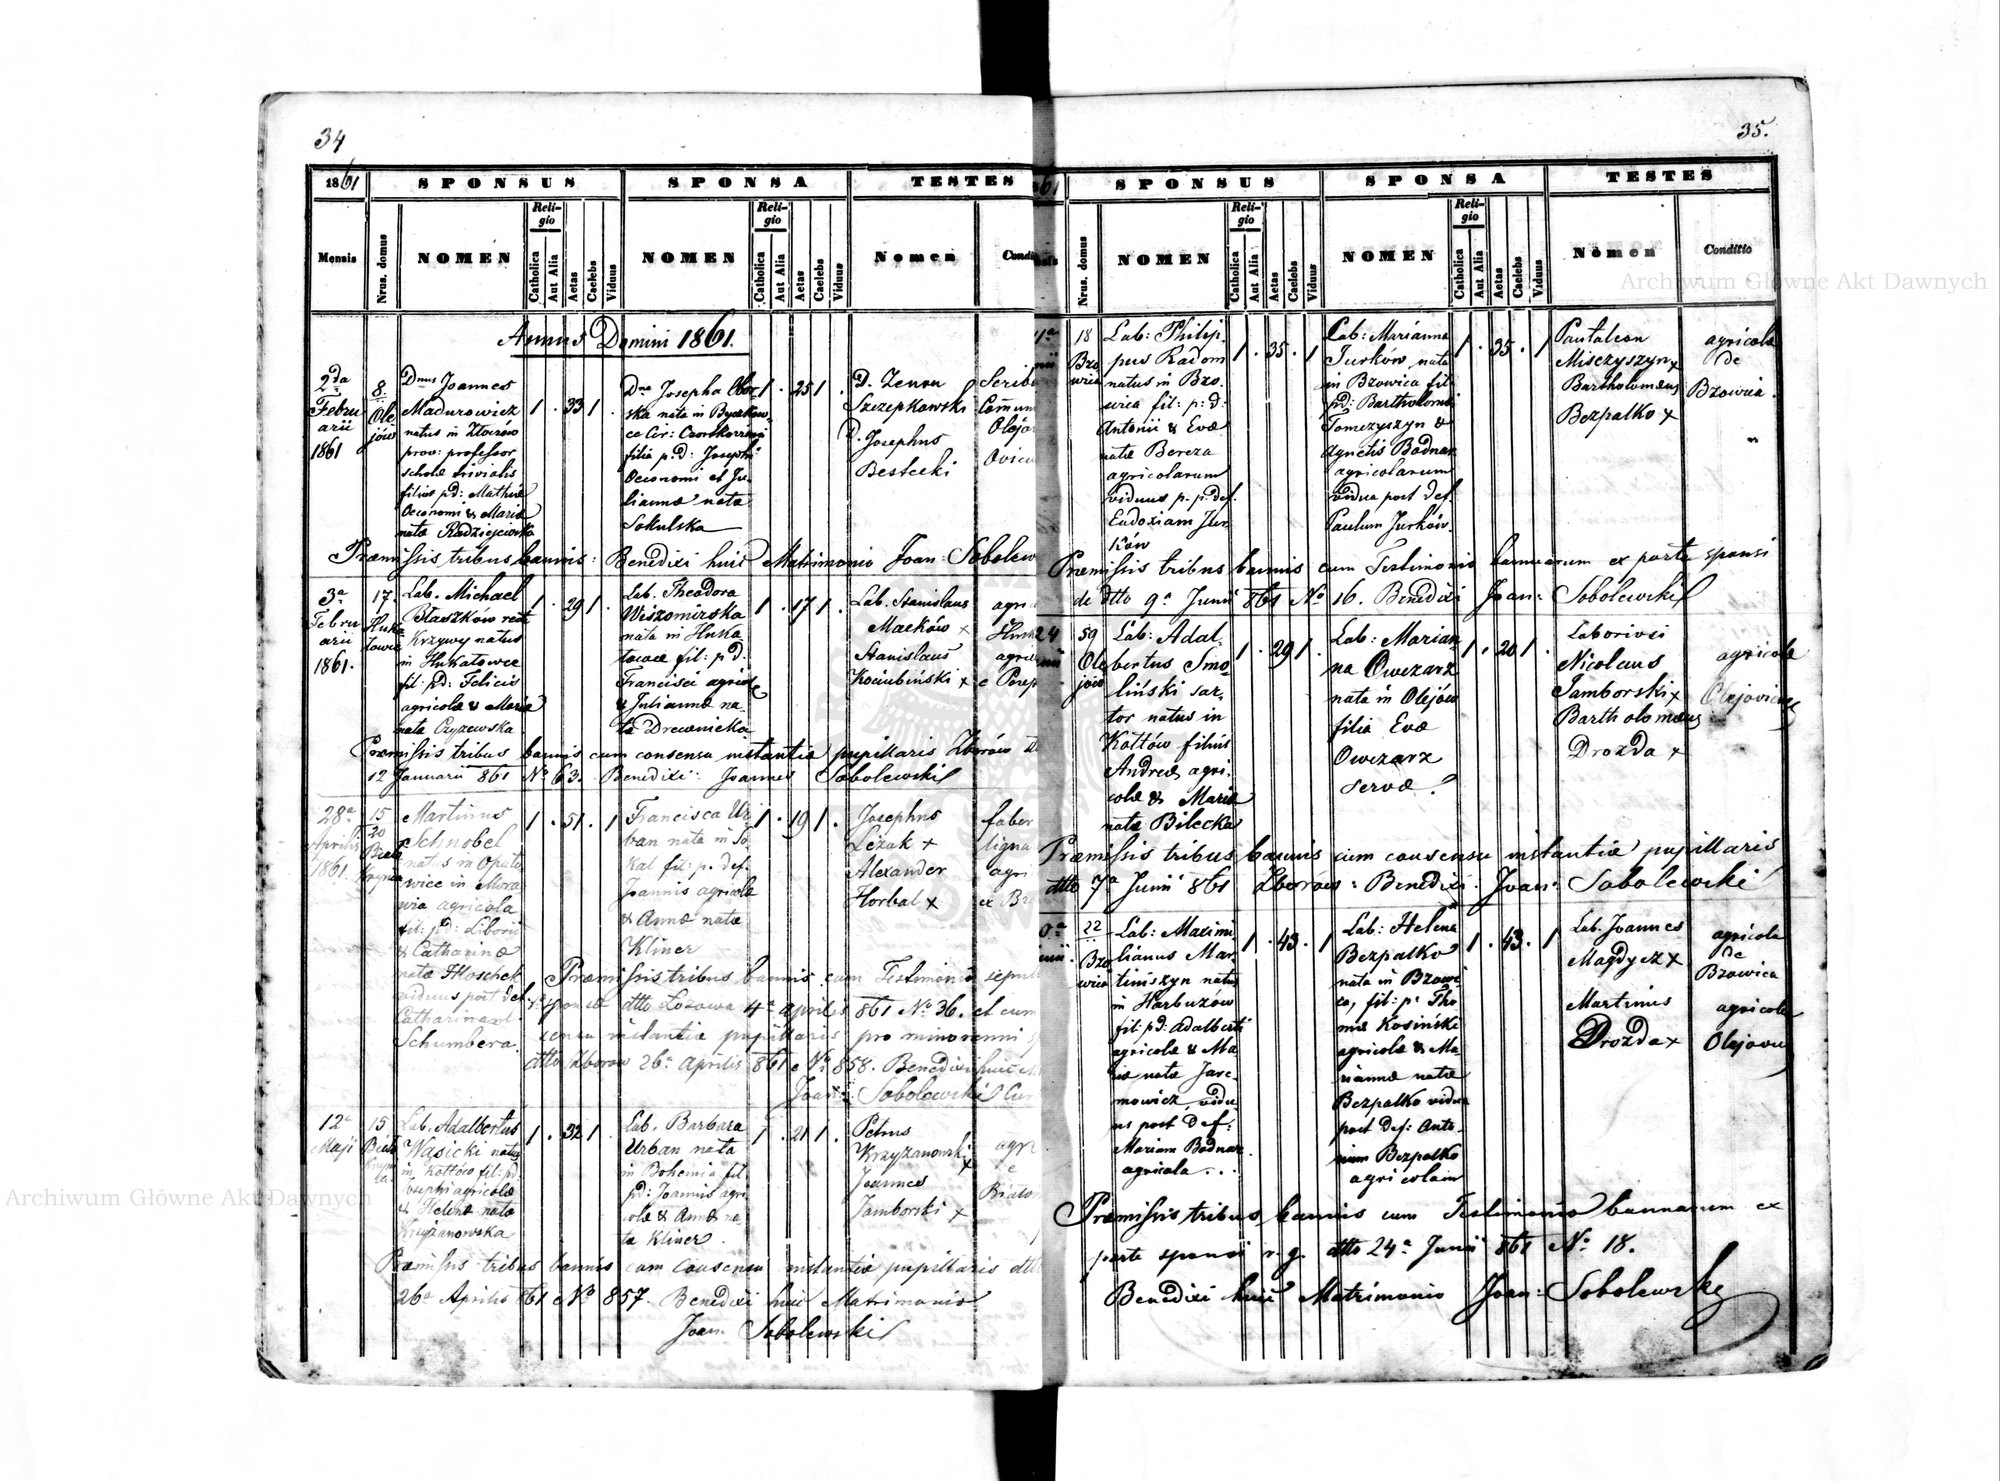 34
1861
SPONSUS
SPONSA
TESTES
Mensis
Nrus. domus
NOMEN
Religio
Catholica
Aut Alia
Aetas
Caelebs
Viduus
NOMEN
Religio
Catholica
Aut Alia
Aetas
Caelebs
Viduus
Nomen
Annus Domini 1861.
2da
Febru
arii
1861
8.
Ole
jów
Dnus Joannes
Madurowicz
natus in Złoczów
prov: professor
scholæ trivialis
filius pd: Mathiæ
Oeconomi & Mariæ
natæ Radziejewska
1 . 33 1 .
Dna Josepha
ska nata in
ce Cir: Czortkoviensi
filia pd: Josephi
Oeconomi et Ju
liannæ natæ
Sokulska
1 . 25 1 .
D. Zenon
Szczepkowski
D. Josephus
Bestecki
Præmissis tribus bannis: Benedixi huic Matrimonio Joan: Sobolew
3a
Febru
arii
1861.
17.
Huka
łowce
Lab. Michael
Błaszków
Krzywy natus
in Hukałowce
fil: pd: Felicis
agricolæ & Mariæ
natæ Czyżewska
1 . 29 1 .
Lab. Theodora
nata in Huka
łowce fil: pd.
Francisci agricolæ
& Juliannæ na
tæ Drewnicka
1 . 17 1 .
Lab. Stanislaus
Maćków x
Stanislaus
Kociubiński x
Præmissis tribus bannis cum consensu instantiæ pupillaris Zborów
12 Januarii 861 No 63. Benedixi: Joannes Sobolewski
28a
Aprilis
1861.
15
20
Martinus
Schnobel
natus in
wice in Mora
via agricola
fil: pd: Liborii
& Catharinæ
natæ Floschek
viduus post def.
Catharinam
Schumbera.
1 . 51 . 1
Francisca Ur
ban nata in So
kal fil: p. def.
Joannis agricolæ
& Annæ natæ
Kliner
1 . 19 1 .
Josephus
Leżak x
Alexander
Horbal x
faber
ligna
agri
Præmissis tribus bannis cum Testimonio
dtto Łozowa 4a aprilis 861 No 36. et cum
sensu instantiæ pupillaris pro minorenni
dtto Zborów 26a Aprilis 861 No 858. Benedixi huic
Joan: Sobolewski
12a
Maji
15
Lab. Adalbertus
Wąsicki natus
in Kołtów fil: pd.
Josephi agricolæ
& Helenæ natæ
Krzyżanowska
1 . 32 1 .
Lab. Barbara
Urban nata
in Bohemia fil.
pd: Joannis agri
colæ & Annæ na
tæ Kliner.
1 . 21 1 .
Petrus
Krzyżanowski
x
Joannes
Jamborski x
Præmissis tribus bannis cum consensu instantiæ pupillaris dtto
26a Aprilis 861 No 857. Benedixi huic Matrimonio
Joan: Sobolewski
35.
SPONSUS
SPONSA
TESTES
Nrus. domus
NOMEN
Religio
Catholica
Aut Alia
Aetas
Caelebs
Viduus
NOMEN
Religio
Catholica
Aut Alia
Aetas
Caelebs
Viduus
Nomen
Conditio
18
Bzo
wica
Lab: Philip
pus Radom
natus in Bzo
wica fil: p: d:
Antonii & Evæ
natæ Bereza
agricolarum
viduus p. p. def.
Eudoxiam Jur
ków
1 . 35 . 1
Lab: Marianna
Jurków nata
in Bzowica fil:
pd: Bartholomæi
Tomczyszyn &
Agnetis Bodnar
agricolarum
vidua post def.
Paulum Jurków.
1 . 35 . 1
Pantaleon
Misczyszyn x
Bartholomæus
Bezpalko x
agricolæ
de
Bzowica.
Præmissis tribus bannis cum Testimonio bannorum ex parte sponsi
de dtto 9a Junii 861 No 16. Benedixi Joan: Sobolewski
24
59
Ole
jów
Lab: Adal
bertus Smo
liński sar
tor natus in
Kołtów filius
Andreæ agri
colæ & Mariæ
natæ Bilecka
1 . 29 1 .
Lab: Marian
na Owczarz
nata in Olejów
filia Evæ
Owczarz
servæ.
1 . 20 1 .
Laboriosi
Nicolaus
Jamborski x
Bartholomæus
Drozda x
agricolæ
Olejovienses
Præmissis tribus bannis cum consensu instantiæ pupillaris
dtto 7a Junii 861 Zborów: Benedixi Joan: Sobolewski
22
Bzo
wica
Lab: Maximi
lianus Mar
timszyn natus
in Harbuzów
fil: pd: Adalberti
agricolæ & Ma
riæ natæ Jare
mowicz vidu
us post def:
Mariam Bodnar
agricola...
1 . 43 . 1
Lab: Helena
Bezpalko
nata in Bzowi
ca, fil: p: Tho
mæ Kosiński
agricolæ & Ma
riannæ natæ
Bezpalko vidua
post def: Anto
nium Bezpalko
agricolam
1 . 43 . 1
Lab. Joannes
Magdycz x
Martinus
Drozda x
agricola
de
Bzowica
agricola
Præmissis tribus bannis cum Testimonio bannorum ex
parte sponsi r. g. dtto 24a Junii 861 No 18.
Benedixi huic Matrimonio Joan: Sobolewski
Archiwum Główne Akt Dawnych
Archiwum Główne Akt Dawnych